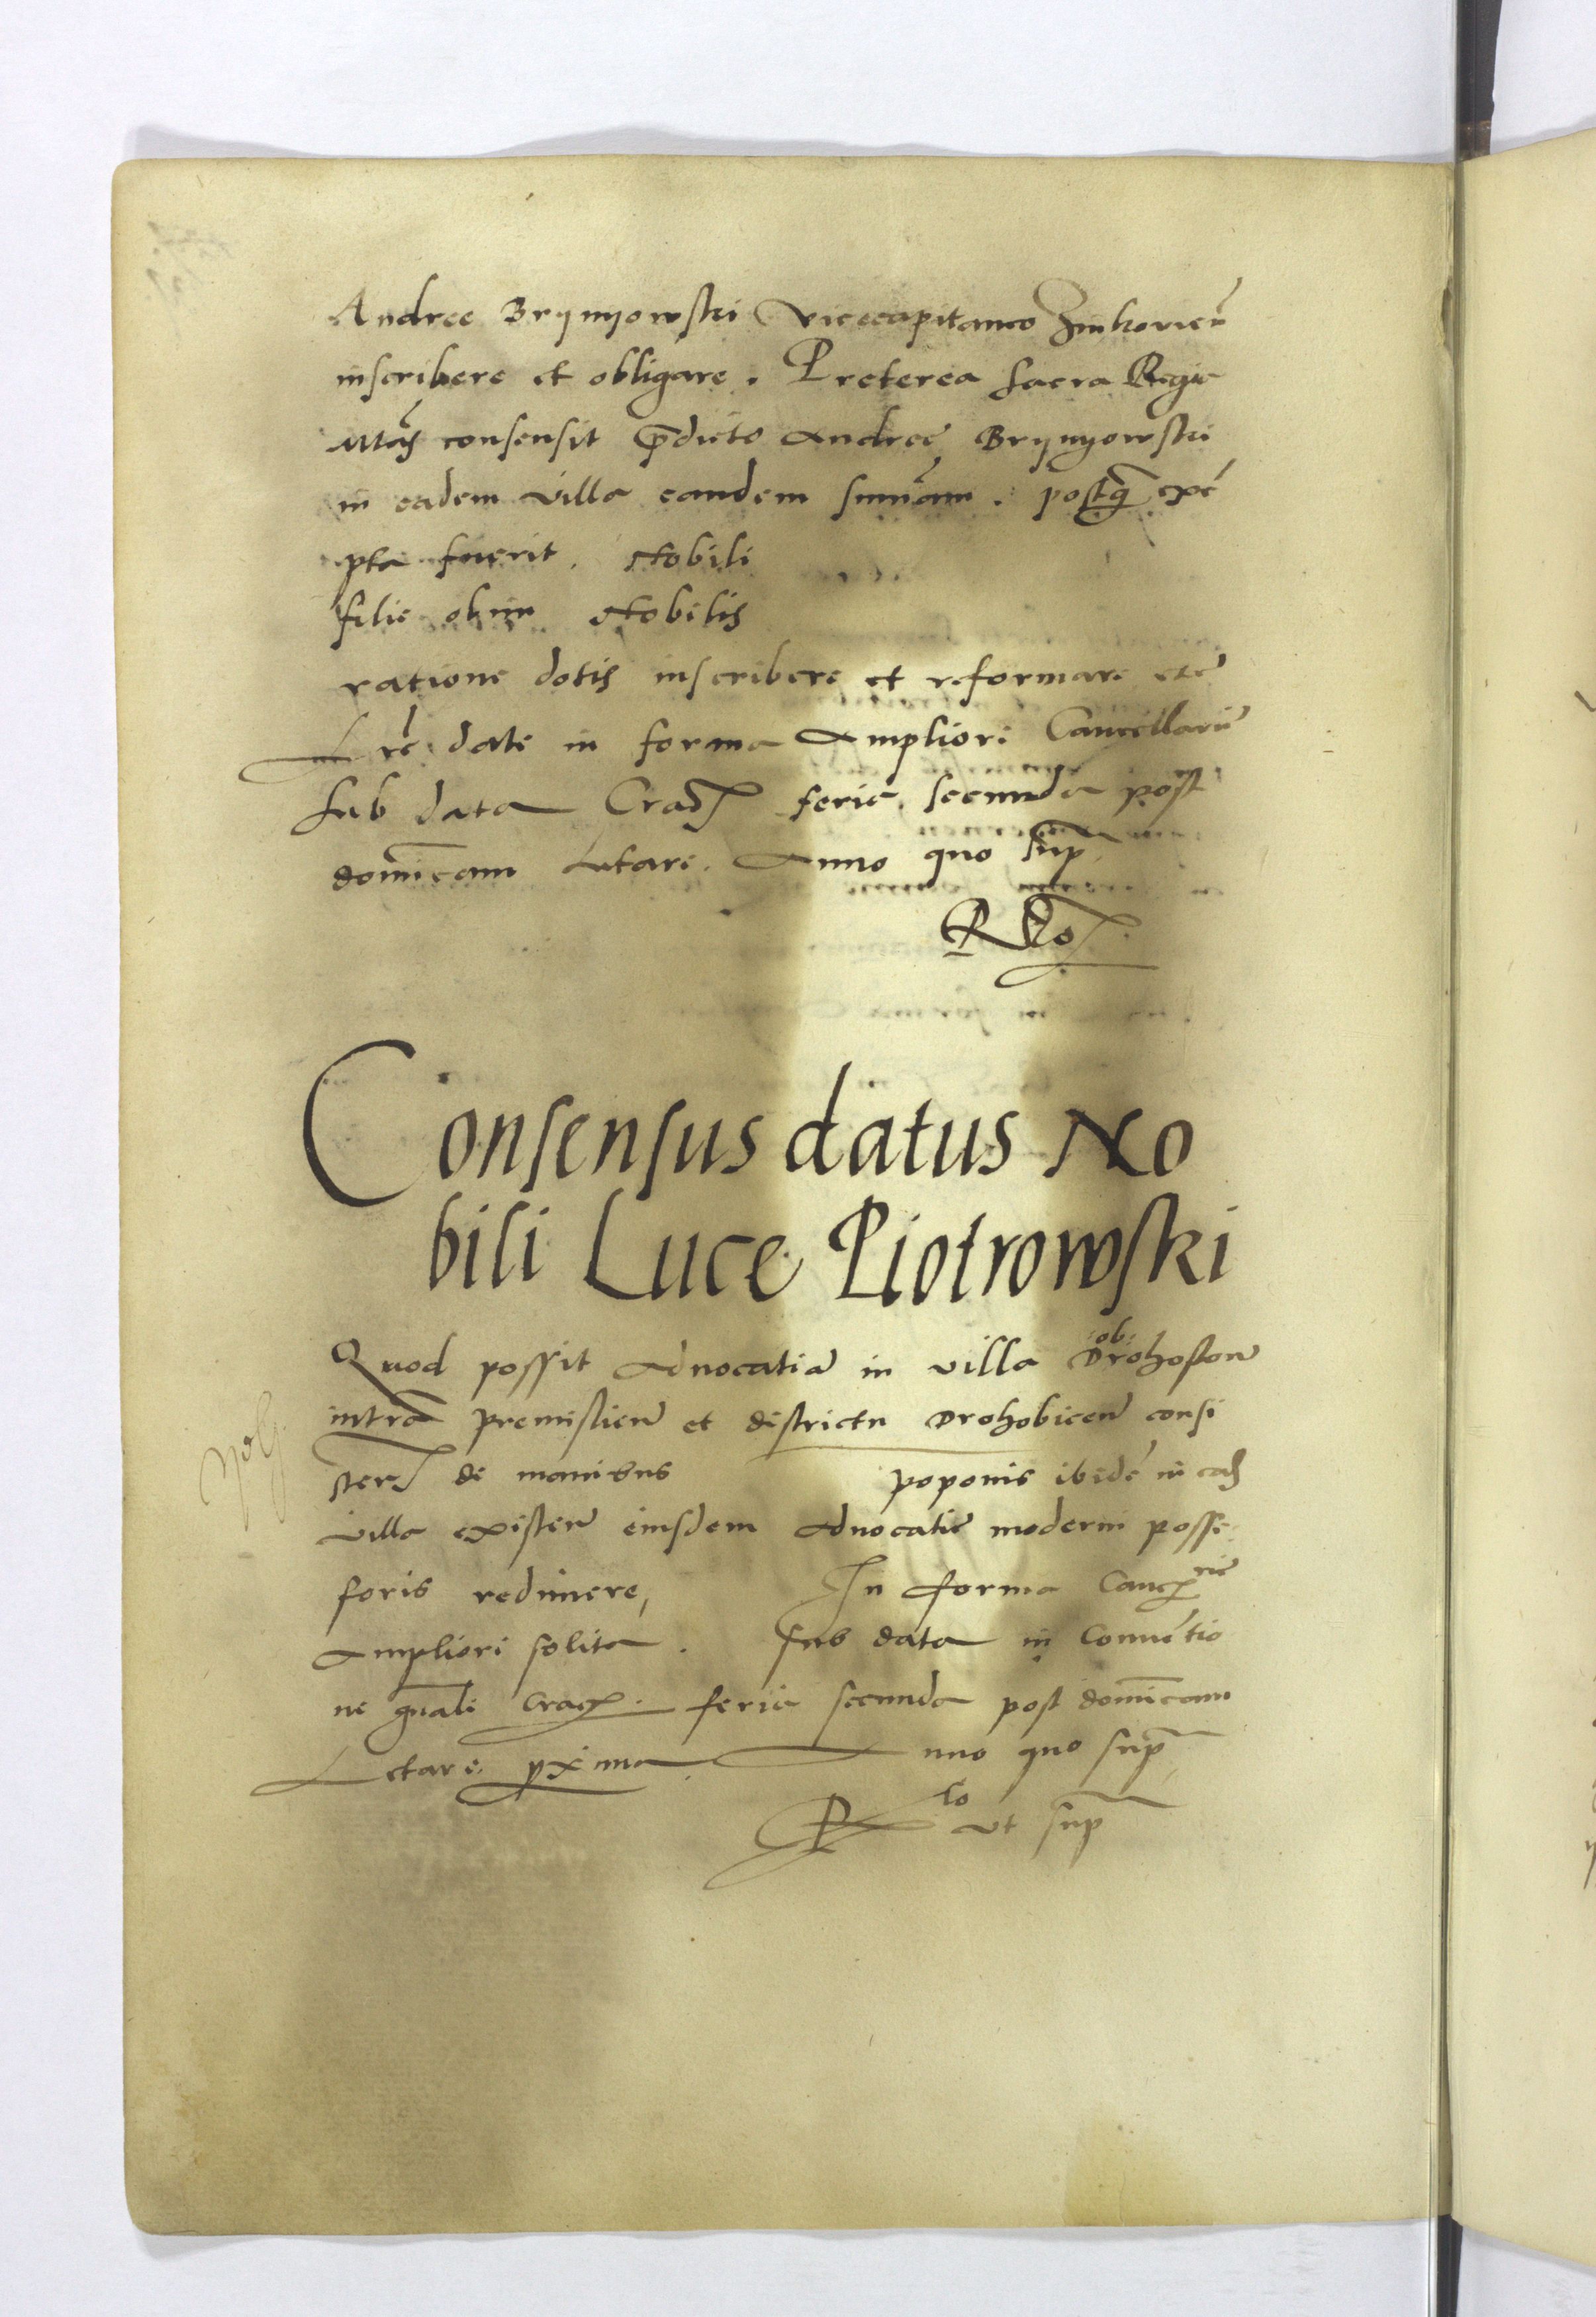 Andree Brynyowski Vicecapitaneo Zinkovien̄
inscribere et obligare. Preterea sacra Regia
Mtas consensit p̄dicto Andree Brynyowski
in eadem villa eandem sum̄am. postq̄ exē
pta fuerit. Nobili
filie olim Nobilis
ratione dotis inscribere et reformare etc̄
Lr̄e date in forma Ampliori Cancellarie
sub data Crac feria secunda post
domīcam Letare. Anno quo sup̄
Rlo
Consensus datus No
bili Luce Piotrowski
Quod possit Advocatia in villa Drohoston̄
ob
intra premislien̄ et districtu Drohobicen̄ consi
ster de manibus poponis ibidē in ead
villa existen̄ eiusdem Advocatie moderni posse
soris redimere, In forma Canc rie
Ampliori solita. Sub data in Convētio
ne gn̄ali Crac. feria secunda post domīcam
Letare pxima. Anno quo sup̄
R lo ut sup̄